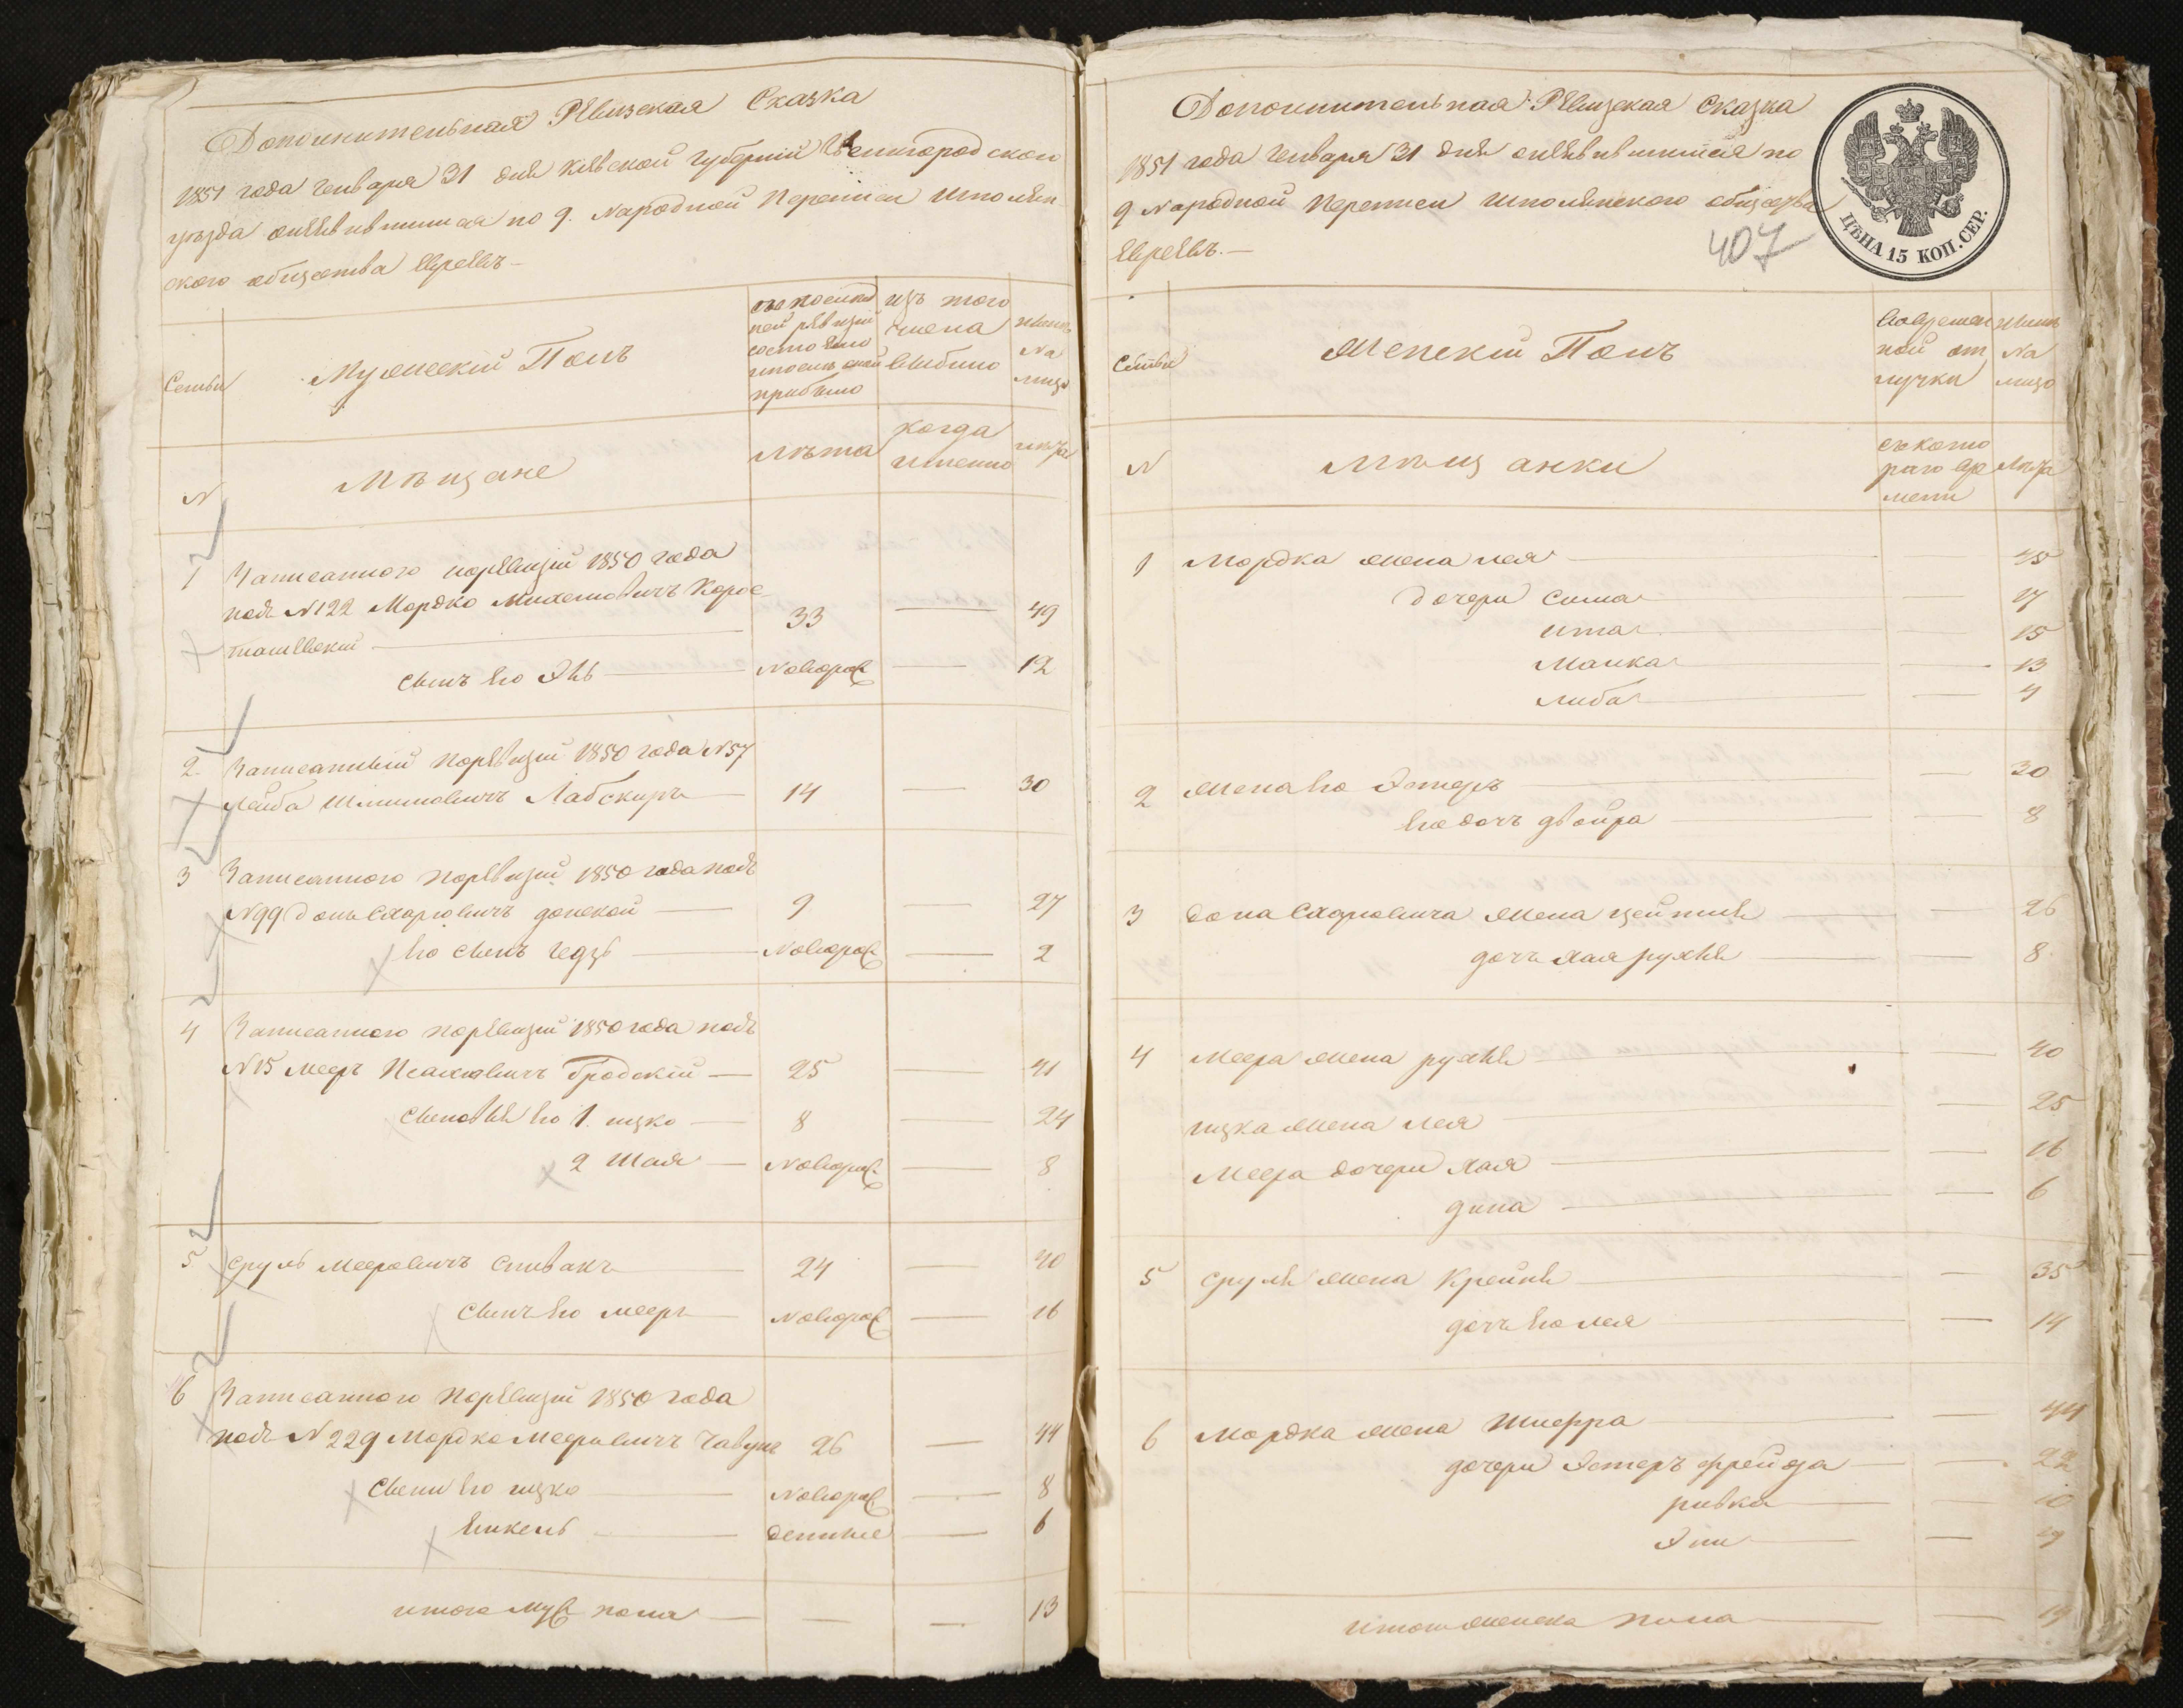 Дополнительная Ревизская Сказка
1851 года Генваря 31 дня Киевской Губернии Звенигородского
уезда оневившимся по 9. Народной Переписи Шполян-
ского общества Евреевъ
Семьи
Мужескій Полъ
по последней ревизіи состояло и после оной прибыло
изъ того числа выбыло
ныне на лицо
N
Мѣщане
Лѣта
когда именно
лѣта
1 Записанного по ревизіи 1850 года
подъ N122 Мордко
33 — 49
сынъ его — Новорож — 12
2. Записанный по ревизіи 1850 года N57
Лейба Лабскиръ — 14 — 30
3 Записанного по ревизіи 1850 года подъ
N99 донской — 9 — 27
его сынъ — Новорож — 2
4 Записанного по ревизіи 1850 года подъ
N15 Мееръ Бродскій — 25 — 41
сыновья его 1. ицко — 8 — 24
2 Шая — Новорож — 8
5 Сруль Мееровичъ Спивакъ — 24 — 40
сынъ его Мееръ — Новорож — 16
6 Записанного по ревизіи 1850 года
подъ N229 Мордко Мееровичъ Чавунъ 26 — 44
сыны его ицко — Новорож — 8
Янкель — — 6
итого муж пола — — — 13
Дополнительная Ревизская Сказка
1851 года Генваря 31 дня оневившимся по
9 Народной Переписи Шполянского общества
Евреевъ. —
407
ЦѢНА 15 КОП. СЕР.
Семьи
Женскій Полъ
Во временной отлучки
ныне на лицо
N
Мѣщанки
съ котораго времени
Лѣта
1 Мордка жена лея — 45
дочери сима — 17
ита — 15
Малка — 13
Либа — 4
2 Жена его Эстеръ — 30
его дочь двойра — 8
3 жена цейтля — 26
дочь хая рухля — 8
4 Меера жена рухля — 40
ицка жена лея — 25
Меера дочери хая — 16
дина — 6
5 Сруля жена Крейня — 35
дочь его лея — 14
6 Мордка жена Шифра — 44
дочери Эстеръ фрейда — 22
ривка — 10
Эти — 4
итого женска пола — — 19